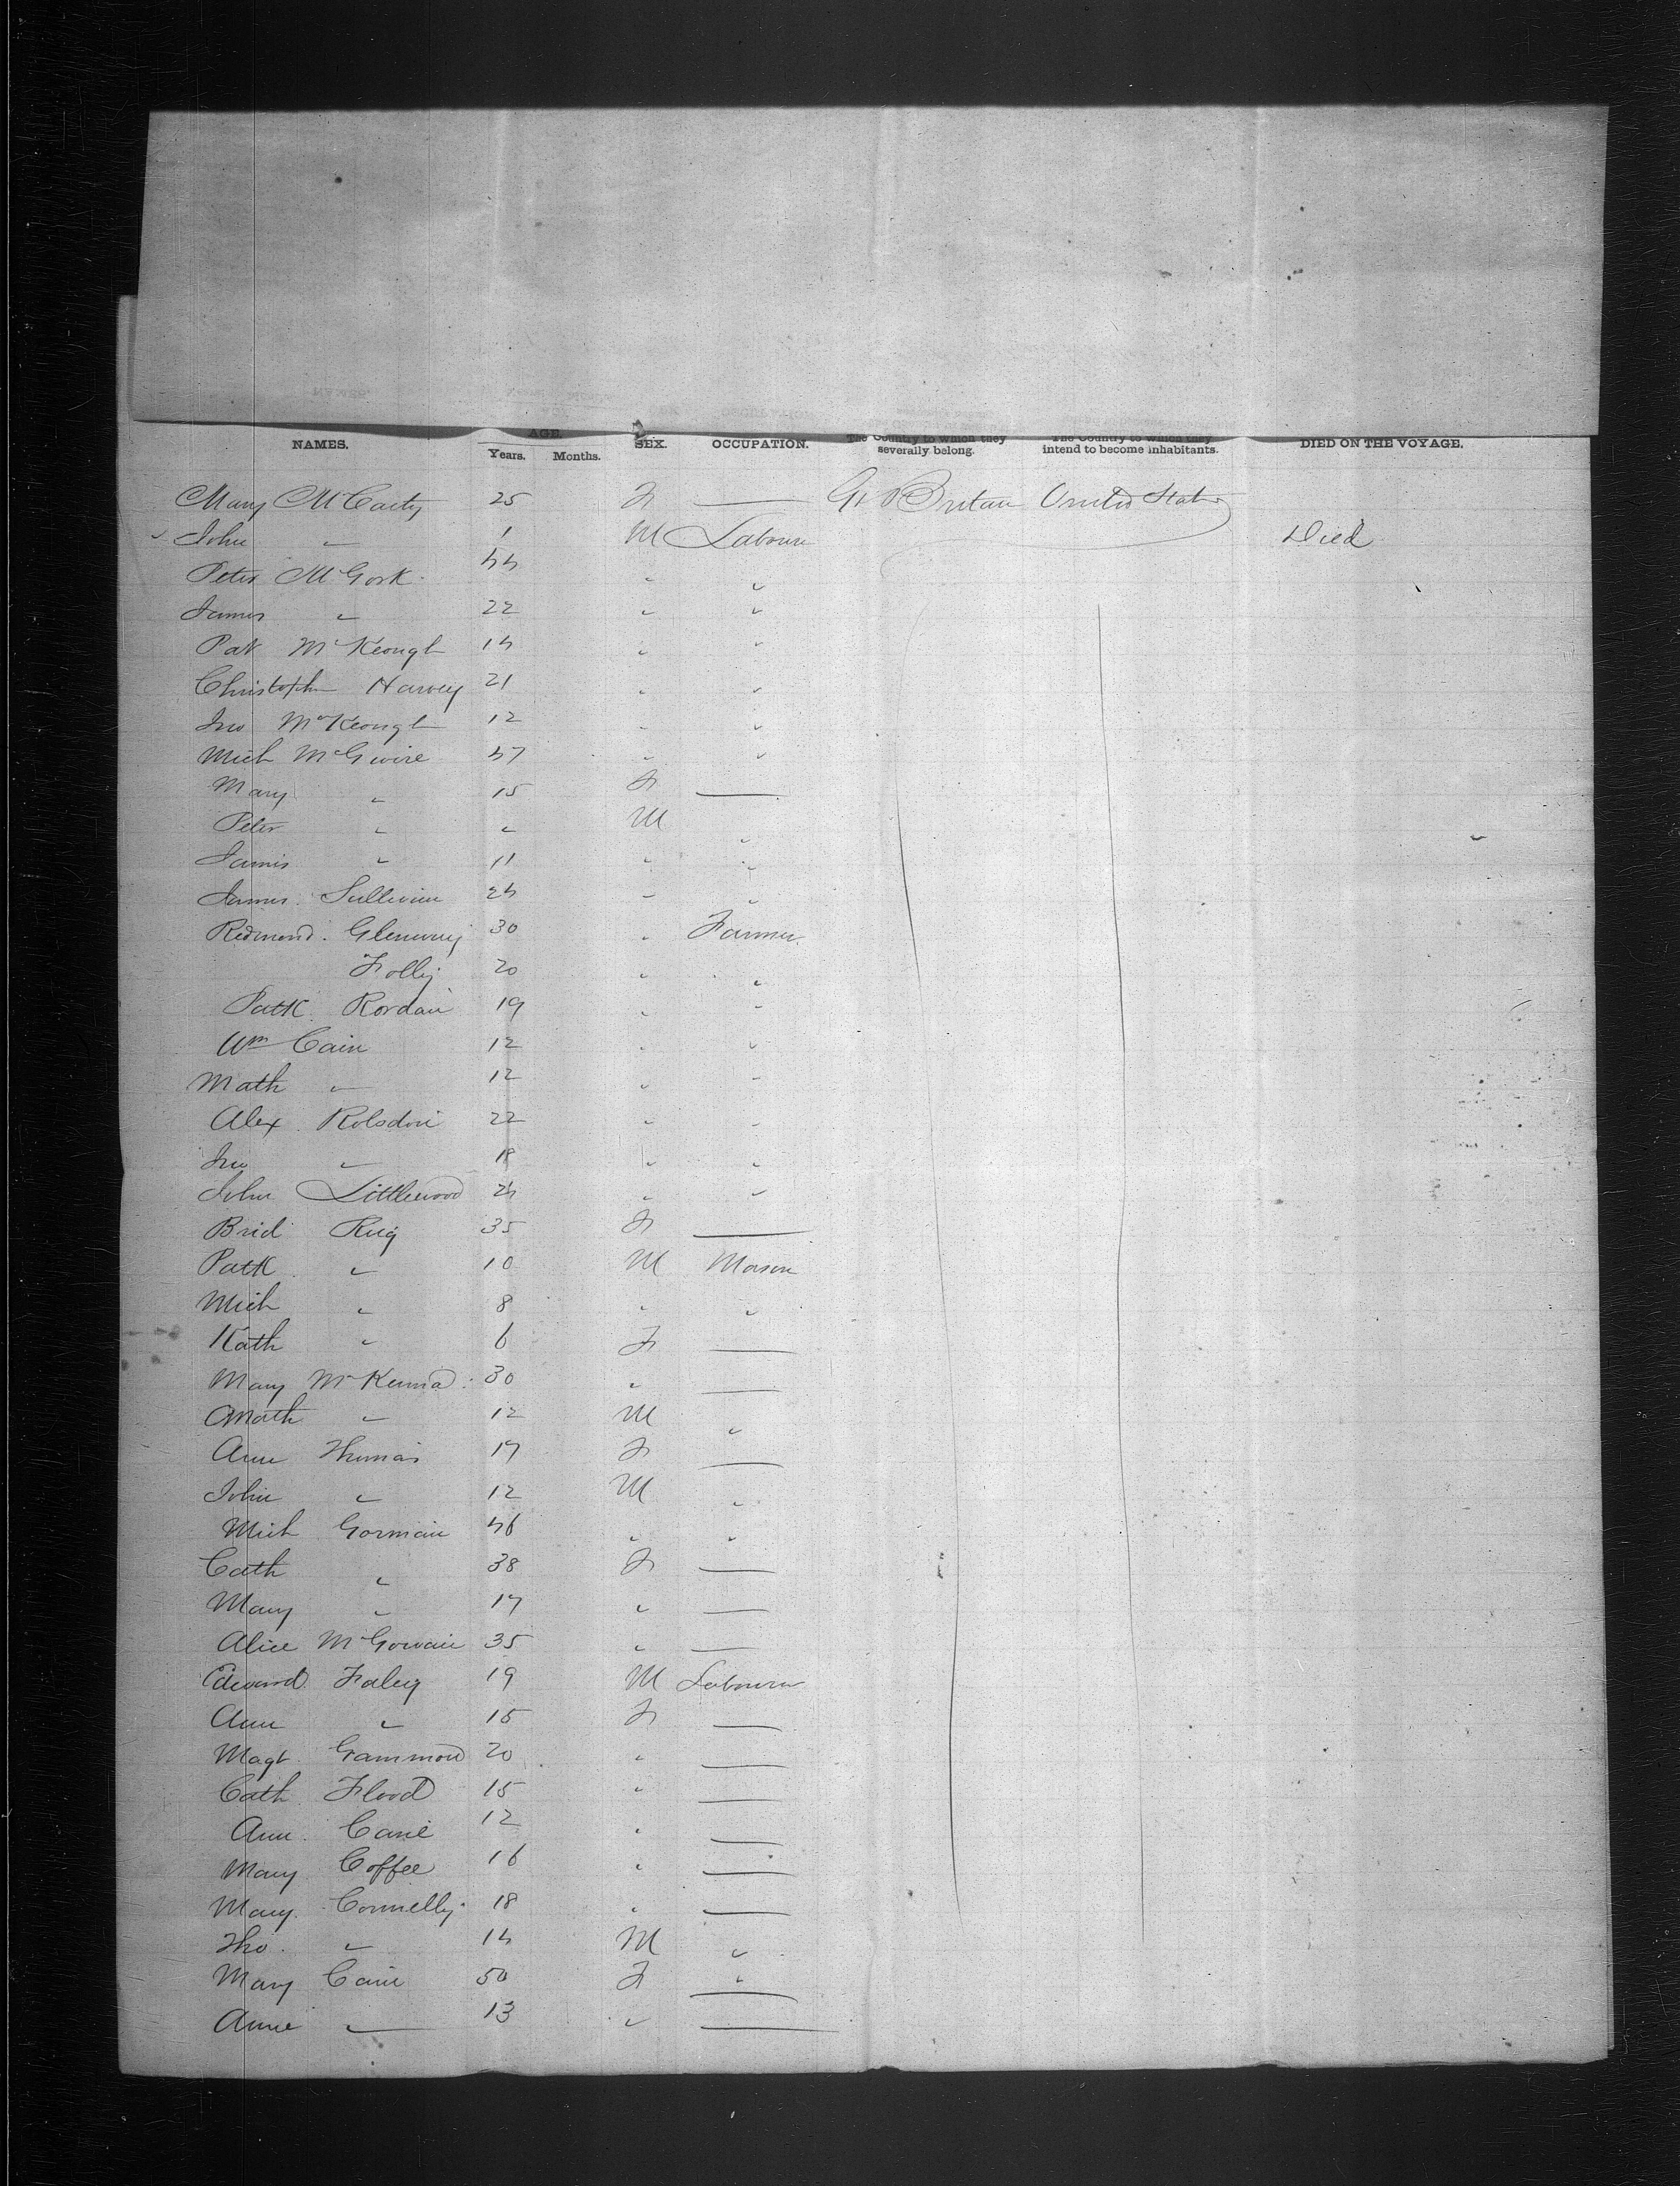 NAMES. AGE. Years. Months. SEX. OCCUPATION. The Country to which they severally belong. The Country to which they intend to become inhabitants. DIED ON THE VOYAGE.
Mary McCarty 25 F — Gt Britain United States
John " 1 M Labourer Died
Peter McGork 44 " "
James " 22 " "
Pat McKeough 14 " "
Christopher Harvey 21 " "
Jno McKeough 12 " "
Mich McGwire 47 " "
Mary " 15 F —
Peter " " M "
James " 11 " "
James Sullivan 24 " "
Redmond 30 " Farmer
Folly 20 " "
Patk Rordan 19 " "
Wm Cain 12 " "
Math " 12 " "
Alex 22 " "
Jno " 18 " "
John Littlewood 24 " "
Brid 35 F —
Patk " 10 M Mason
Mich " 8 " "
Kath " 6 F —
Mary McKenna 30 " —
Math " 12 M "
Ann Thomas 17 F —
John " 12 M "
Mich Gorman 46 " "
Cath " 38 F —
Mary " 17 " —
Alice McGowan 35 " —
Edward Faley 19 M Labourer
Ann " 15 F —
Magt Gammon 20 " —
Cath Flood 15 " —
Ann Cane 12 " —
Mary Coffee 16 " —
Mary Connelly 18 " —
Tho. " 14 M "
Mary Cain 50 F " —
Anne " 13 " —